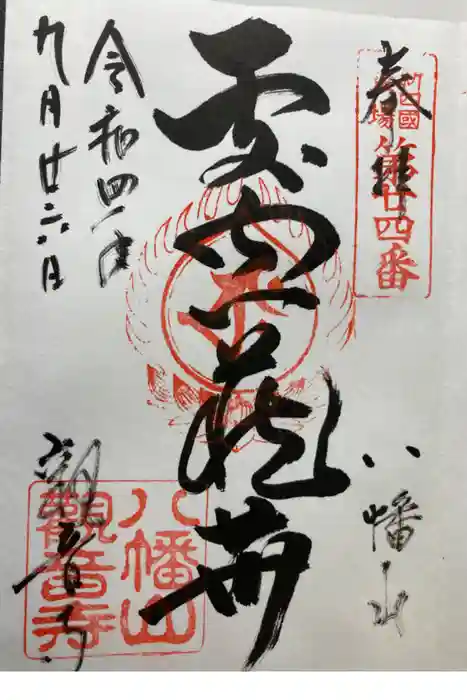 四國
場
第廿四番
奉拝
八幡山
虚空蔵𦬇
令和四年
九月廿六日
観音寺
八幡山
觀音寺